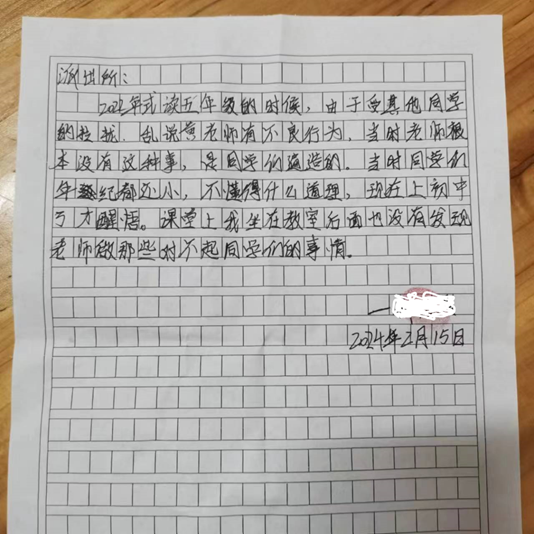 派出所：
2022年我读五年级的时候，由于受其他同学
的拉扰，乱说黄老师有不良行为，当时老师根
本没有这种事，是同学们逼造的。当时同学们
年纪都还小，不懂得什么道理，现在上初中
了才醒悟。课堂上我坐在教室后面也没有发现
老师做那些对不起同学们的事情。
2024年2月15日